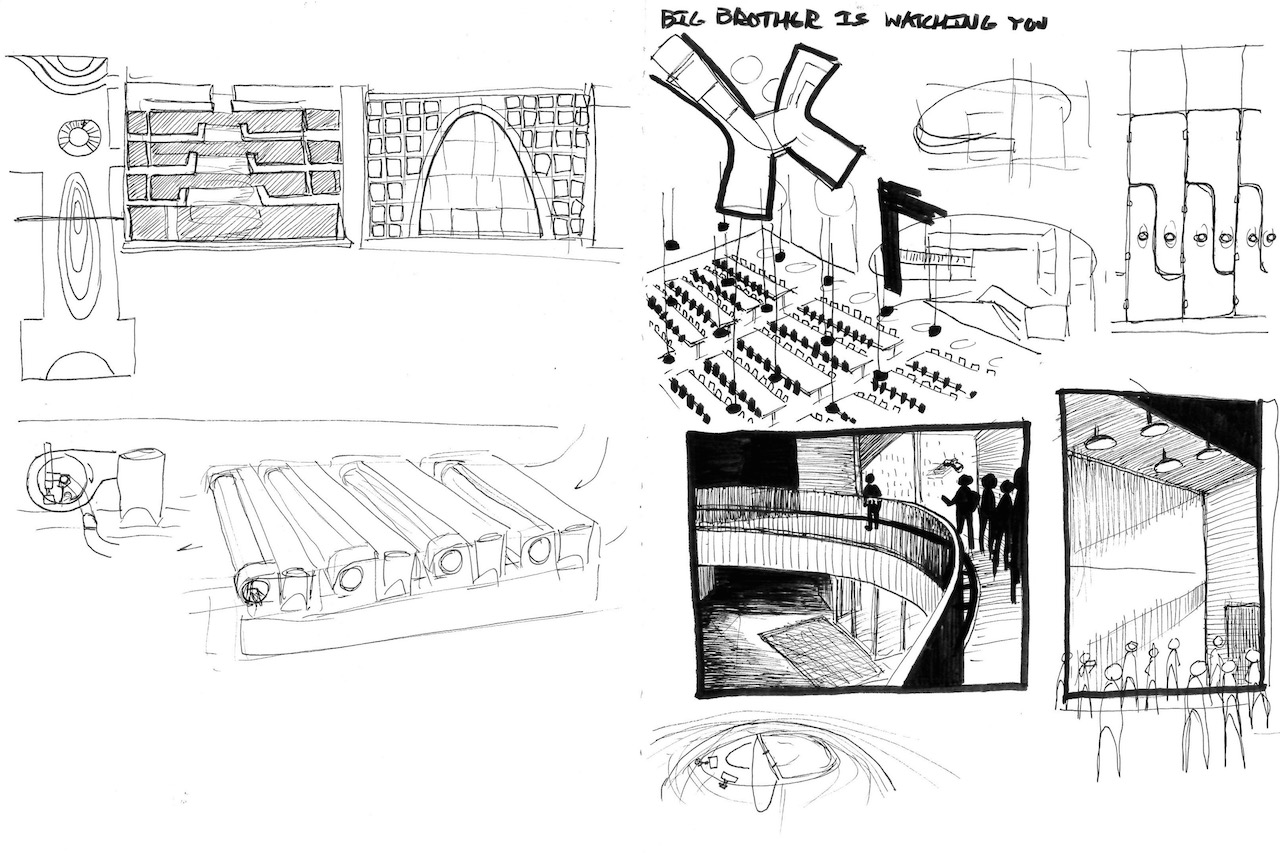 BIG BROTHER IS WATCHING YOU